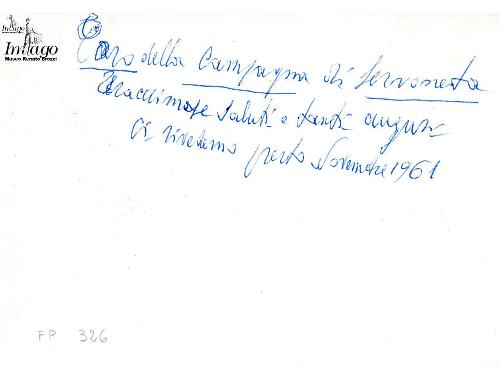 Imago
Imago
Museo Renato Brozzi
Toro della Campagna di Sermoneta
saluti e tanti auguri
Ci rivedremo presto Novembre 1961
FP 326